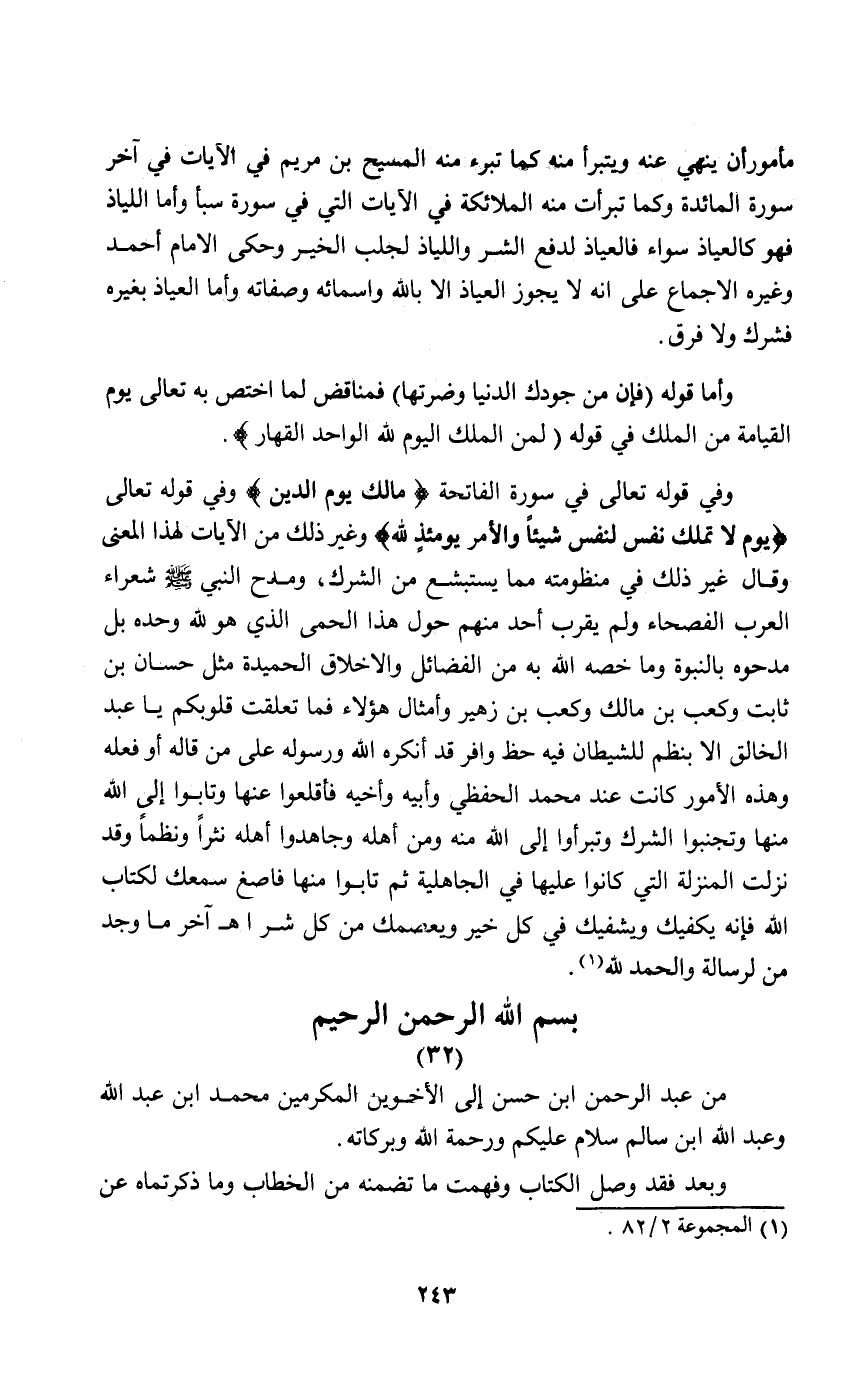 مأمورأن ينهي عنه ويتبرأ منه كما تبرء منه المسيح بن مريم في الآيات في آخر
سورة المائدة وكما تبرأت منه الملائكة في الآيات التي في سورة سبأ وأما اللياذ
فهو كالعياذ سواء فالعياذ لدفع الشر واللياذ لجلب الخير وحكى الامام أحمد
وغيره الاجماع على انه لا يجوز العياذ الا بالله واسمائه وصفاته وأما العياذ بغيره
فشرك ولا فرق.
وأما قوله (فإن من جودك الدنيا وضرتها) فمناقض لما اختص به تعالى يوم
القيامة من الملك في قوله ( لمن الملك اليوم لله الواحد القهار ﴾.
وفي قوله تعالى في سورة الفاتحة ﴿ مالك يوم الدين ﴾ وفي قوله تعالى
﴿يوم لا تملك نفس لنفس شيئاً والأمر يومئذٍ لله﴾ وغير ذلك من الآيات لهذا المعنى
وقال غير ذلك في منظومته مما يستبشع من الشرك، ومدح النبي ﷺ شعراء
العرب الفصحاء ولم يقرب أحد منهم حول هذا الحمى الذي هو لله وحده بل
مدحوه بالنبوة وما خصه الله به من الفضائل والاخلاق الحميدة مثل حسان بن
ثابت وكعب بن مالك وكعب بن زهير وأمثال هؤلاء فما تعلقت قلوبكم يا عبد
الخالق الا بنظم للشيطان فيه حظ وافر قد أنكره الله ورسوله على من قاله أو فعله
وهذه الأمور كانت عند محمد الحفظي وأبيه وأخيه فأقلعوا عنها وتابوا إلى الله
منها وتجنبوا الشرك وتبرأوا إلى الله منه ومن أهله وجاهدوا أهله نثراً ونظماً وقد
نزلت المنزلة التي كانوا عليها في الجاهلية ثم تابوا منها فاصغ سمعك لكتاب
الله فإنه يكفيك ويشفيك في كل خير ويعصمك من كل شر ا هـ آخر ما وجد
من لرسالة والحمد لله(١).
بسم الله الرحمن الرحيم
(٣٢)
من عبد الرحمن ابن حسن إلى الأخوين المكرمين محمد ابن عبد الله
وعبد الله ابن سالم سلام عليكم ورحمة الله وبركاته.
وبعد فقد وصل الكتاب وفهمت ما تضمنه من الخطاب وما ذكرتماه عن
(١) المجموعة ٨٢/٢ .
٢٤٣